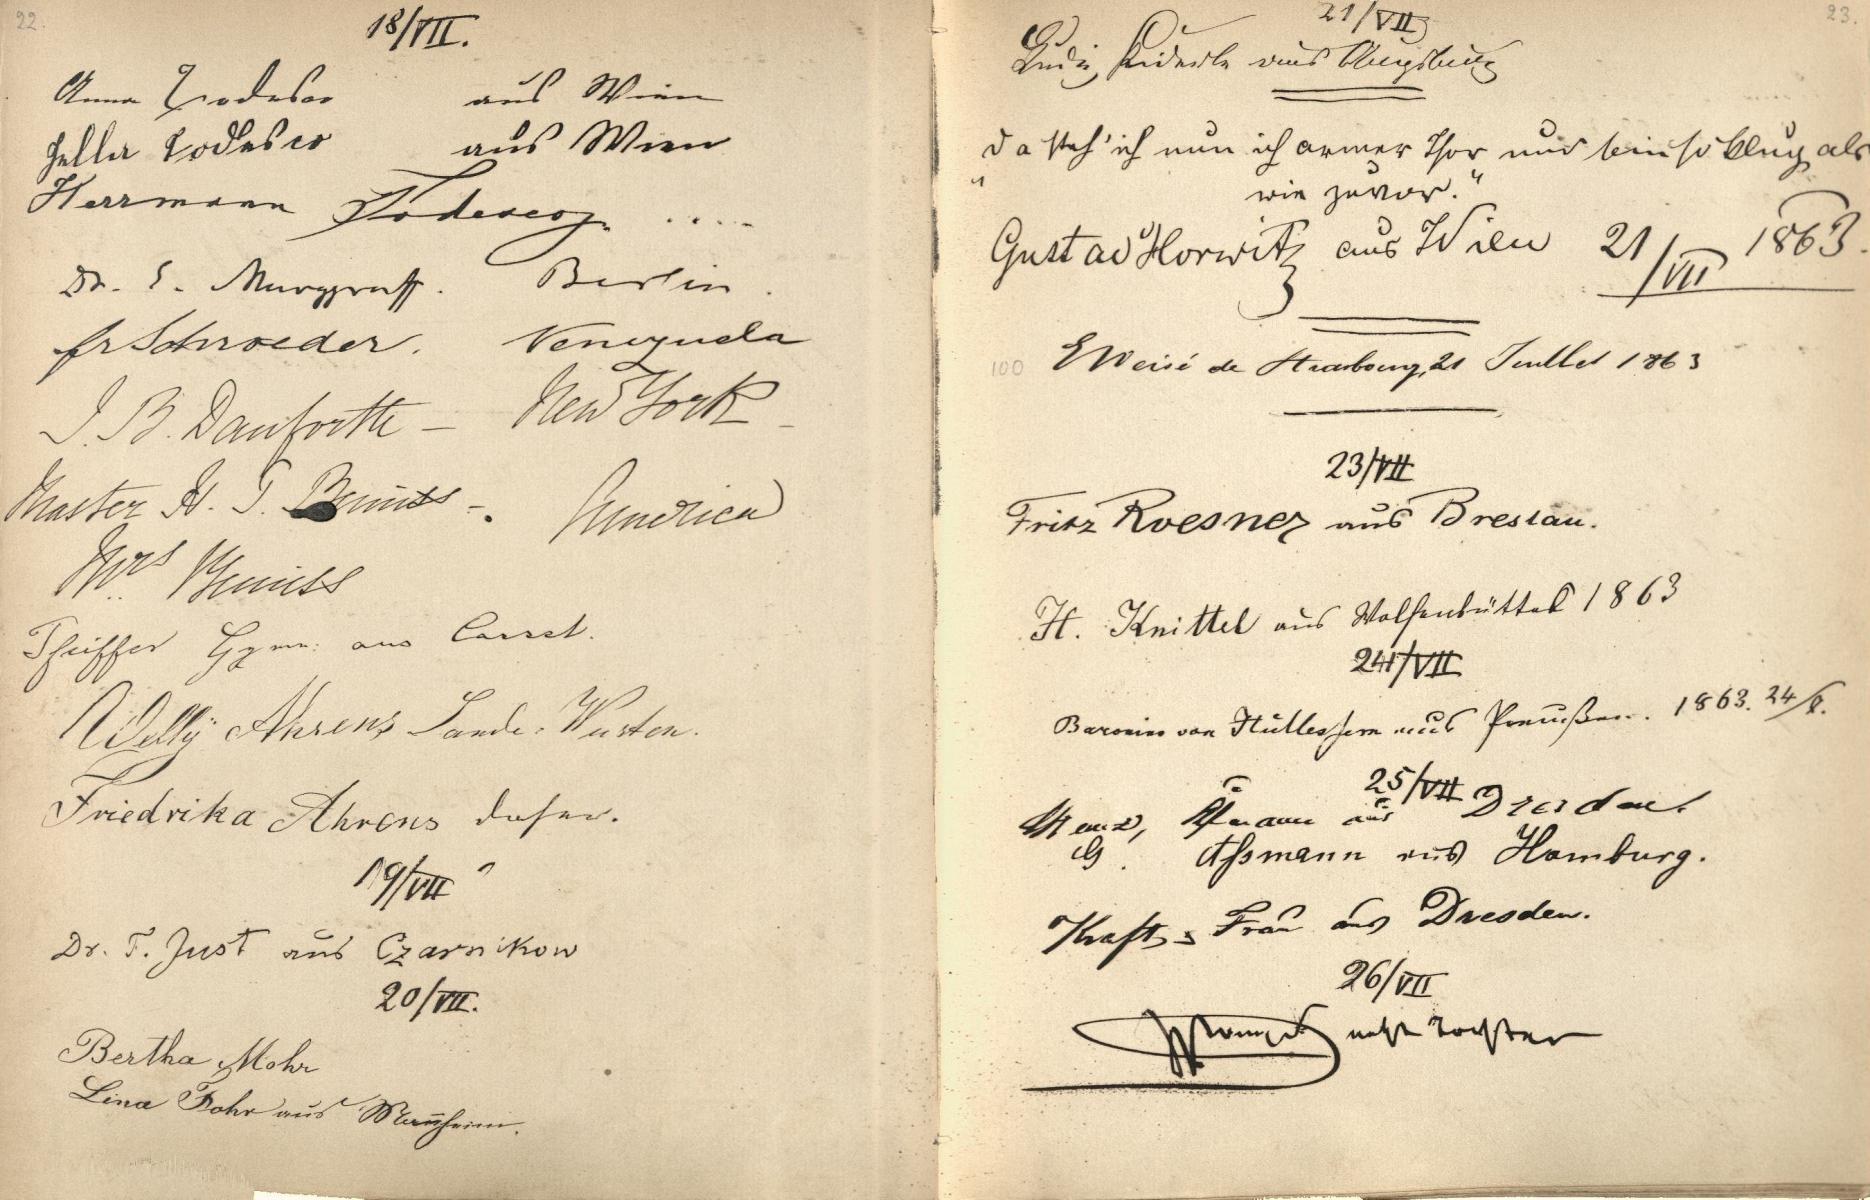 22.
18/VII.
Anna Todesco aus Wien
Jella Todesco aus Wien
Herrmann Todesco
Dr. E. Marggraff. Berlin.
Fr Schroeder. Venezuela
J. B. Danforth – New York –
Master H. T. – America
Mrs
Pfeiffer Gymn: aus Cassel.
Willÿ Ahrens Lande-Wursten.
Friedrika Ahrens daher.
19/VII
Dr. T. Just aus Czarnikow
20/VII.
Bertha Mohr
Lina Fohr aus Mannheim.
23.
21/VII
aus Augsburg
"da steh' ich nun ich armer Thor und bin so klug als
wie zuvor."
Gustav Horwitz aus Wien 21/VII 1863.
100 E Weisé de Strasbourg, 21 Juillet 1863
23/VII
Fritz Roesner aus Breslau.
H. Knittel aus Wolfenbüttel 1863
24/VII
von Hüllessem aus Preußen. 1863. 24/
25/VII
aus Dresden.
G. Aßmann aus Hamburg.
Kraft, u Frau aus Dresden.
26/VII
nebst Tochter